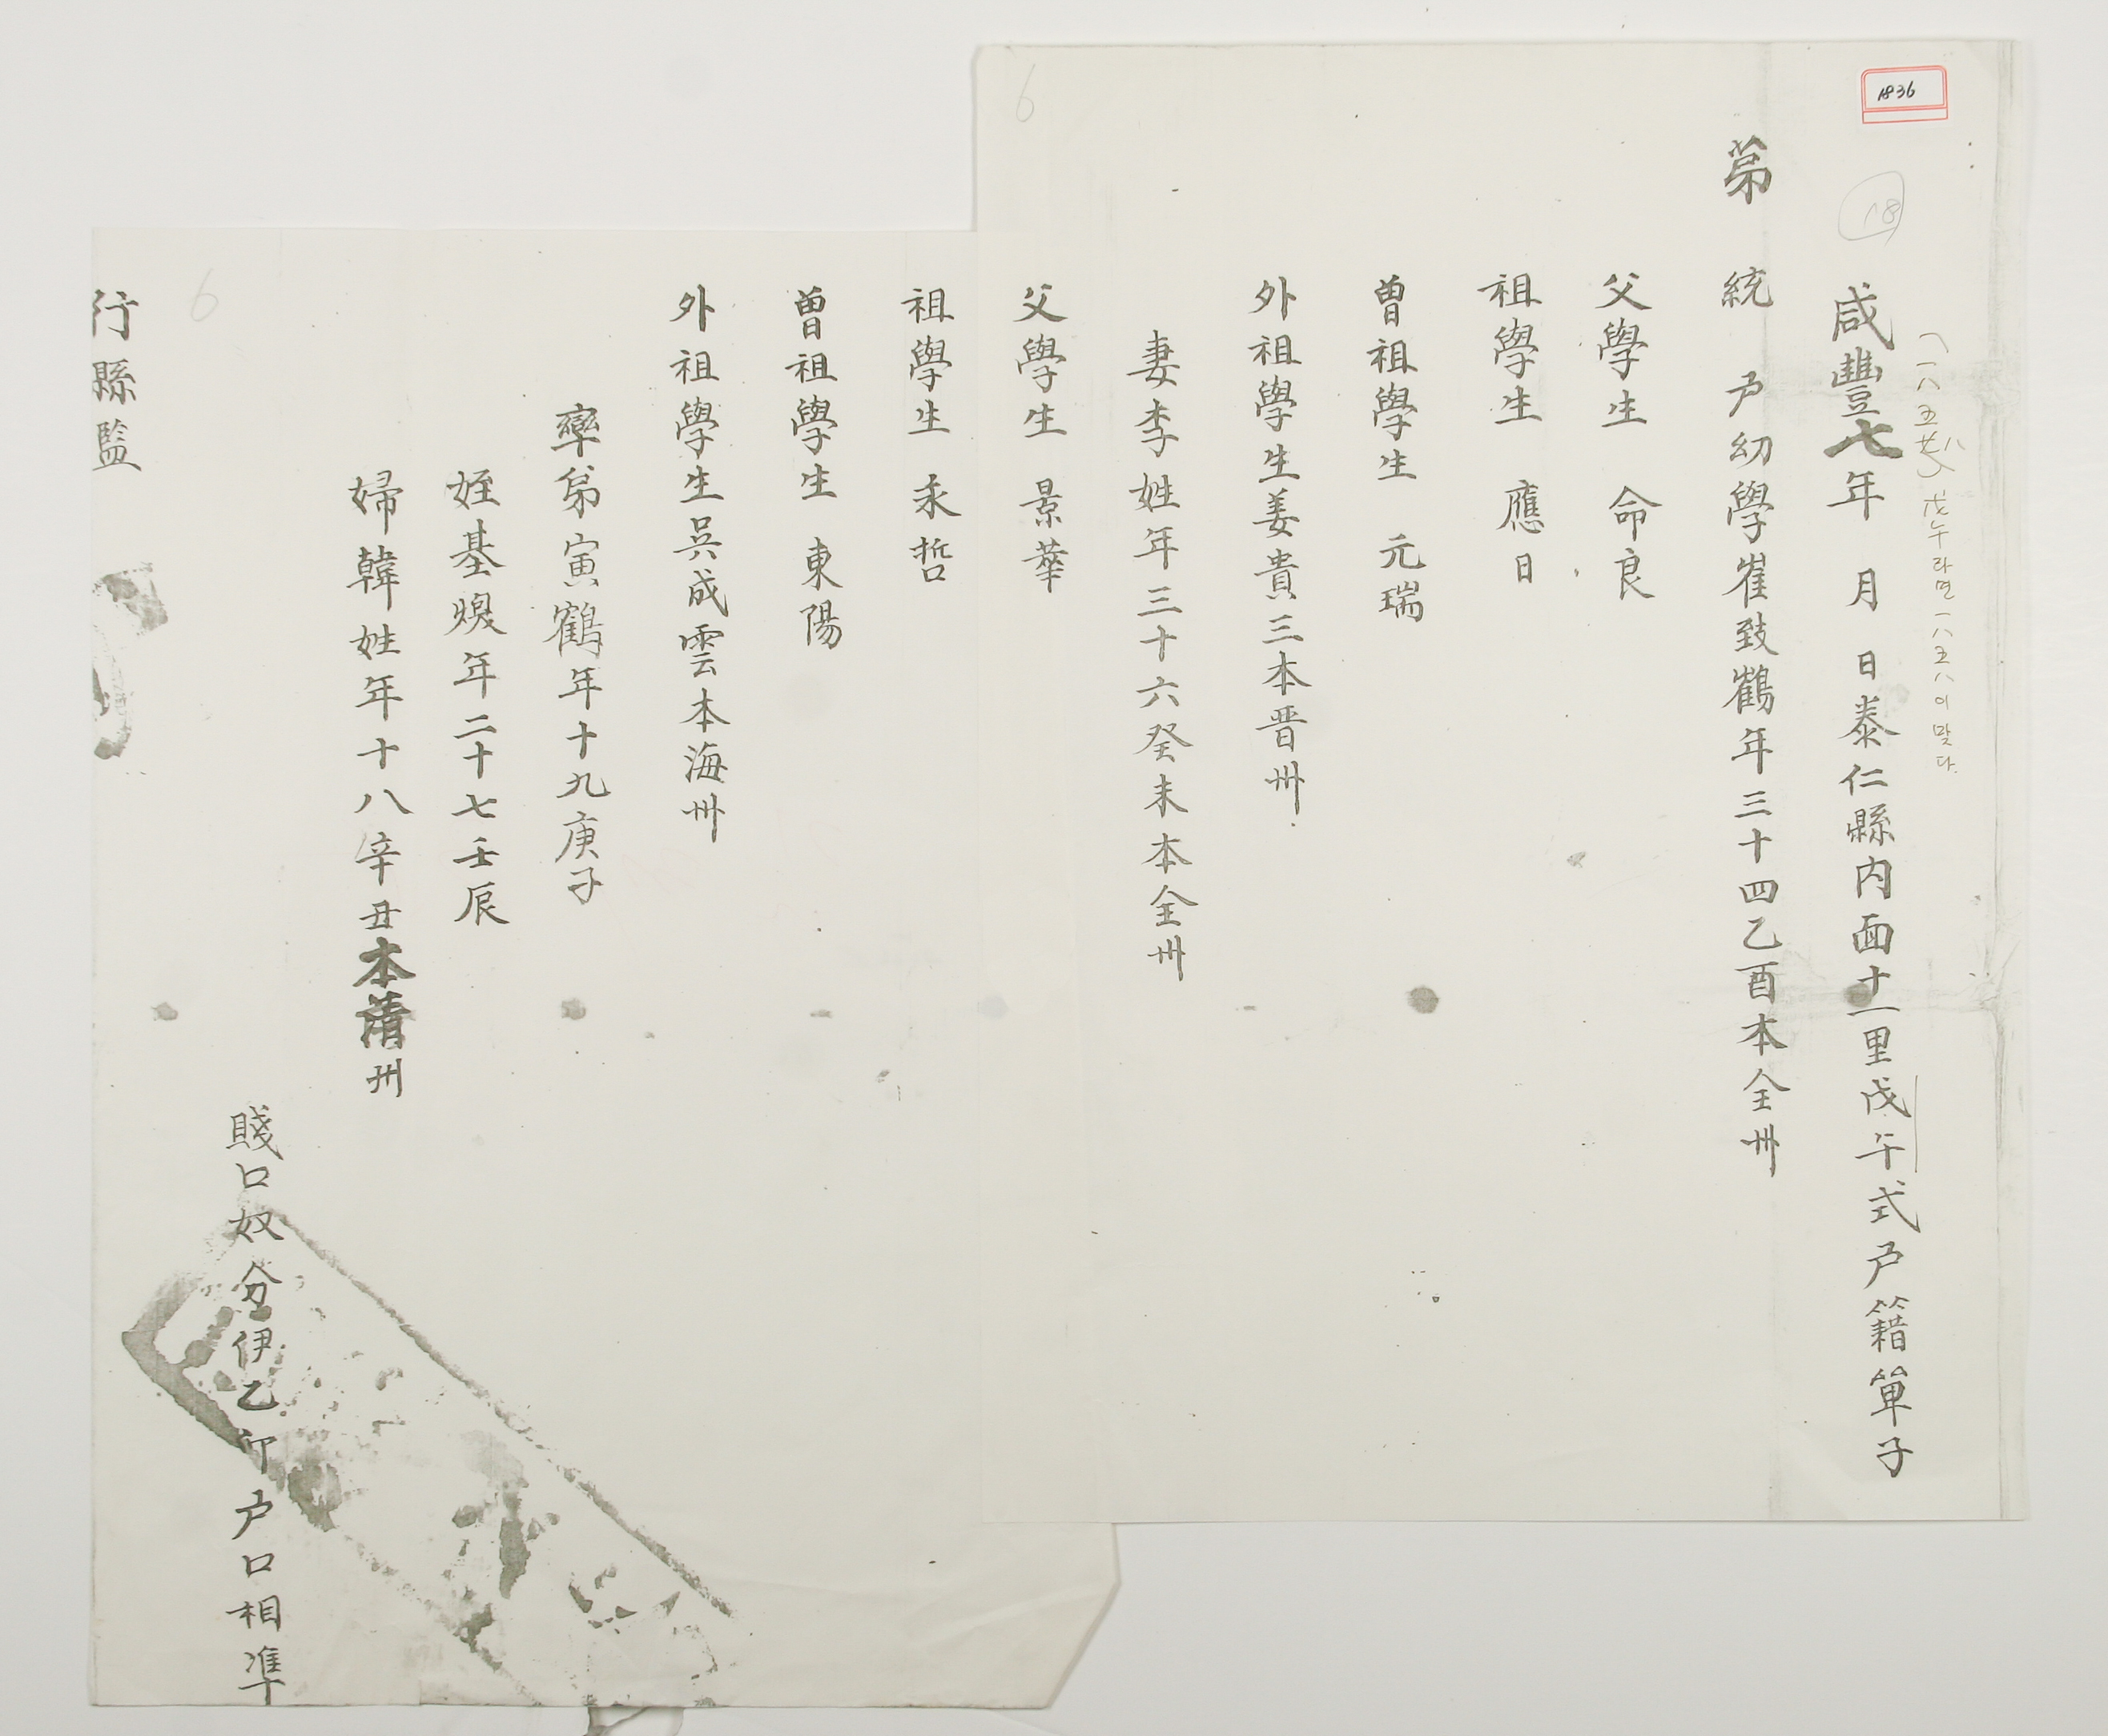 1836
18
(一八五七) 八 戊午라면 一八五八이 맞다.
咸豐七年 月 日泰仁縣内面十一里戊午式戶籍單子
苐 統 戶幼學崔致鶴年三十四乙酉本全州
父學生 命良
祖學生 應日
曾祖學生 元瑞
外祖學生姜貴三本晋州
妻李姓年三十六癸未本全州
6
父學生 景華
祖學生 永哲
曾祖學生 東陽
外祖學生吳成雲本海州
率弟寅鶴年十九庚子
姪基煥年二十七壬辰
婦韓姓年十八辛丑本淸州
賤口奴分伊乙卯戶口相準
6
行縣監